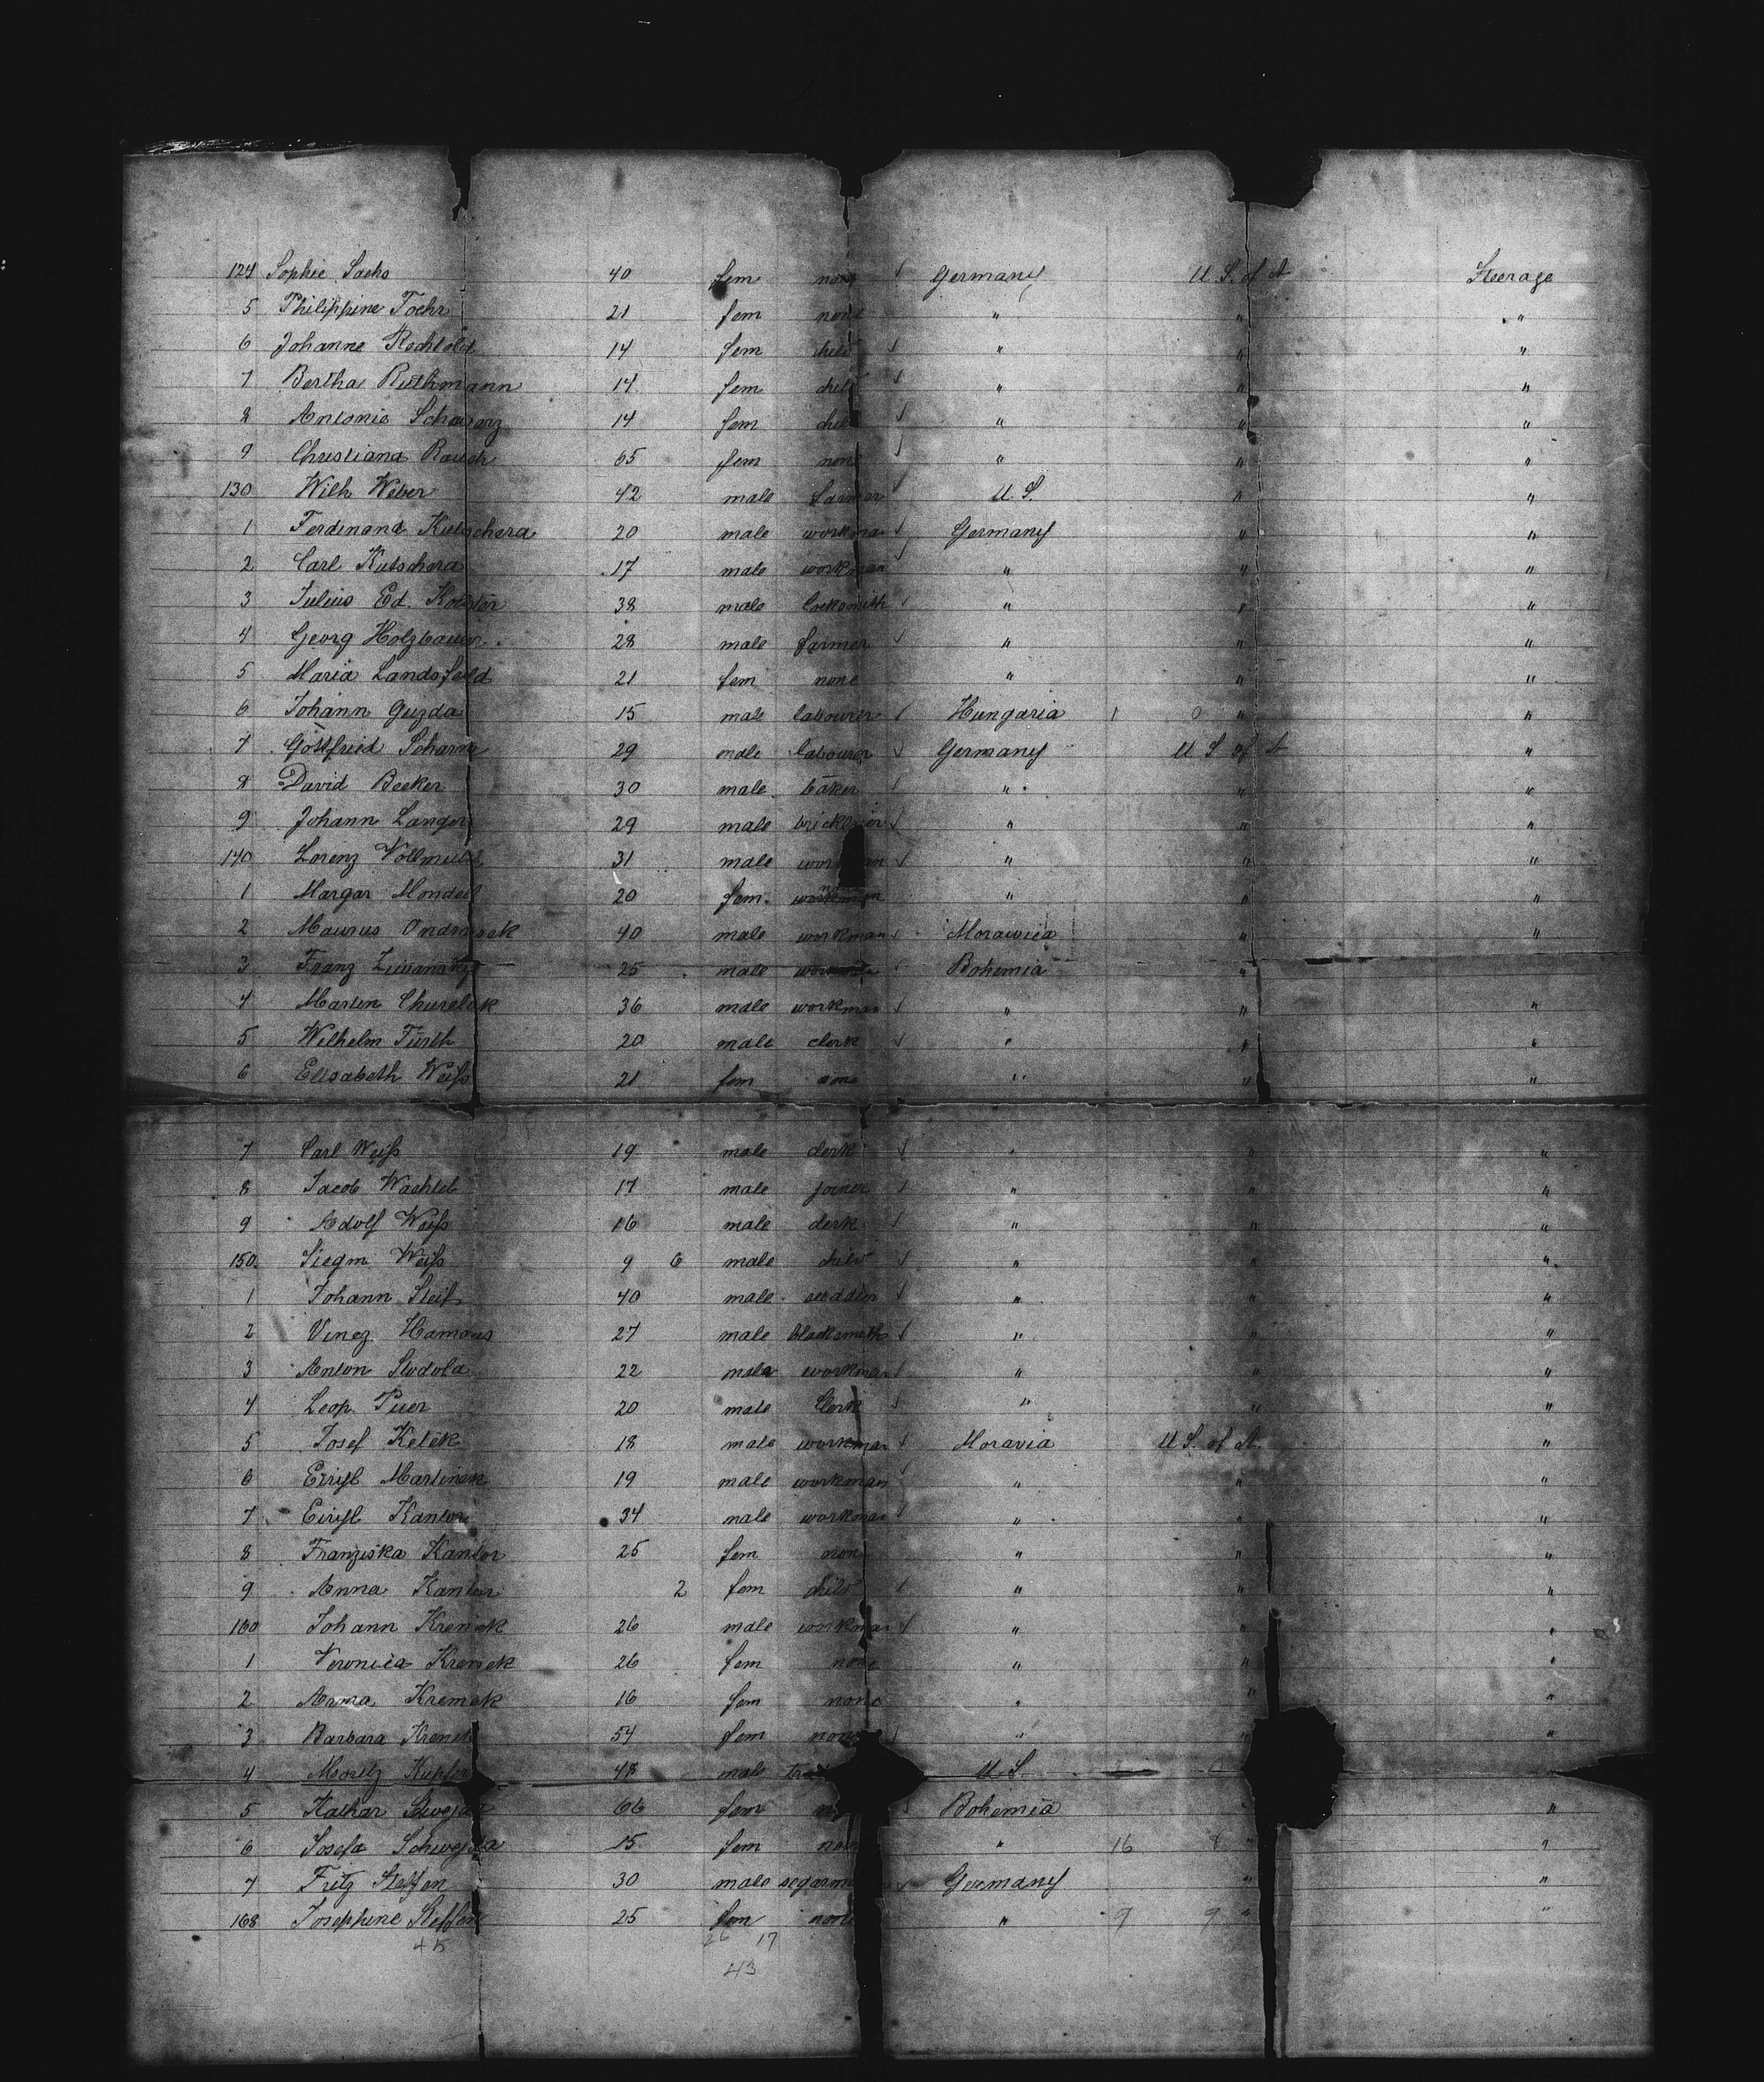 124 Sophie Sachs 40 fem none Germany U. S. of A Steerage
5 Philippine Toehr 21 fem none " " "
6 Johanne Rechtold 14 fem child " " "
7 Bertha Ruthmann 14 fem child " " "
8 Antonie Schwarz 14 fem child " " "
9 Christiana Rausch 65 fem none " " "
130 Wilh Weber 42 male farmer U. S. " "
1 Ferdinand Kutschera 20 male workman Germany " "
2 Carl Kutschera 17 male workman " " "
3 Julius Ed. Koester 38 male locksmith " " "
4 Georg Holzbauer 28 male farmer " " "
5 Maria Landsfeld 21 fem none " " "
6 Johann Guzda 15 male labourer Hungaria 1 0 " "
7 Gottfried Scharm 29 male labourer Germany U S of A "
8 David Becker 30 male baker " " "
9 Johann Langer 29 male bricklayer " " "
140 Lorenz Vollmuth 31 male workman " " "
1 Margar Mondel 20 fem. workman " " "
2 Maurus Ondrasek 40 male workman Morawiea " "
3 Franz 25 male Bohemia "
4 Martin Churelek 36 male workman " " "
5 Wilhelm Fürth 20 male clerk " " "
6 Elisabeth Weiß 21 fem none " " "
7 Carl Weiß 19 male clerk " " "
8 Jacob Wachtel 17 male joiner " " "
9 Adolf Weiß 16 male clerk " " "
150. Siegm Weiß 9 6 male child " " "
1 Johann Steif 40 male saddler " " "
2 Vinez Hamous 27 male blacksmith " " "
3 Anton Stodola 22 male workman " " "
4 Leop. Puer 20 male Clerk " " "
5 Josef Keletk 18 male workman Moravia U S. of A. "
6 Martinek 19 male workman " " "
7 Kantor 34 male workman " " "
8 Franziska Kantor 25 fem none " " "
9 Anna Kantor 2 fem child " " "
160 Johann Kremek 26 male workman " " "
1 Veronica Kremek 26 fem none " " "
2 Anna Kremek 16 fem none " " "
3 Barbara Kremek 54 fem none " " "
4 Moritz Kupler 48 male U. S. "
5 Kathar 66 fem Bohemia " "
6 Josefa Schwejda 15 fem none " 16 8 " "
7 Fritz Steffen 30 male Germany " "
168 Josephine Steffen 25 fem none " 9 9 " "
45 26 17
43